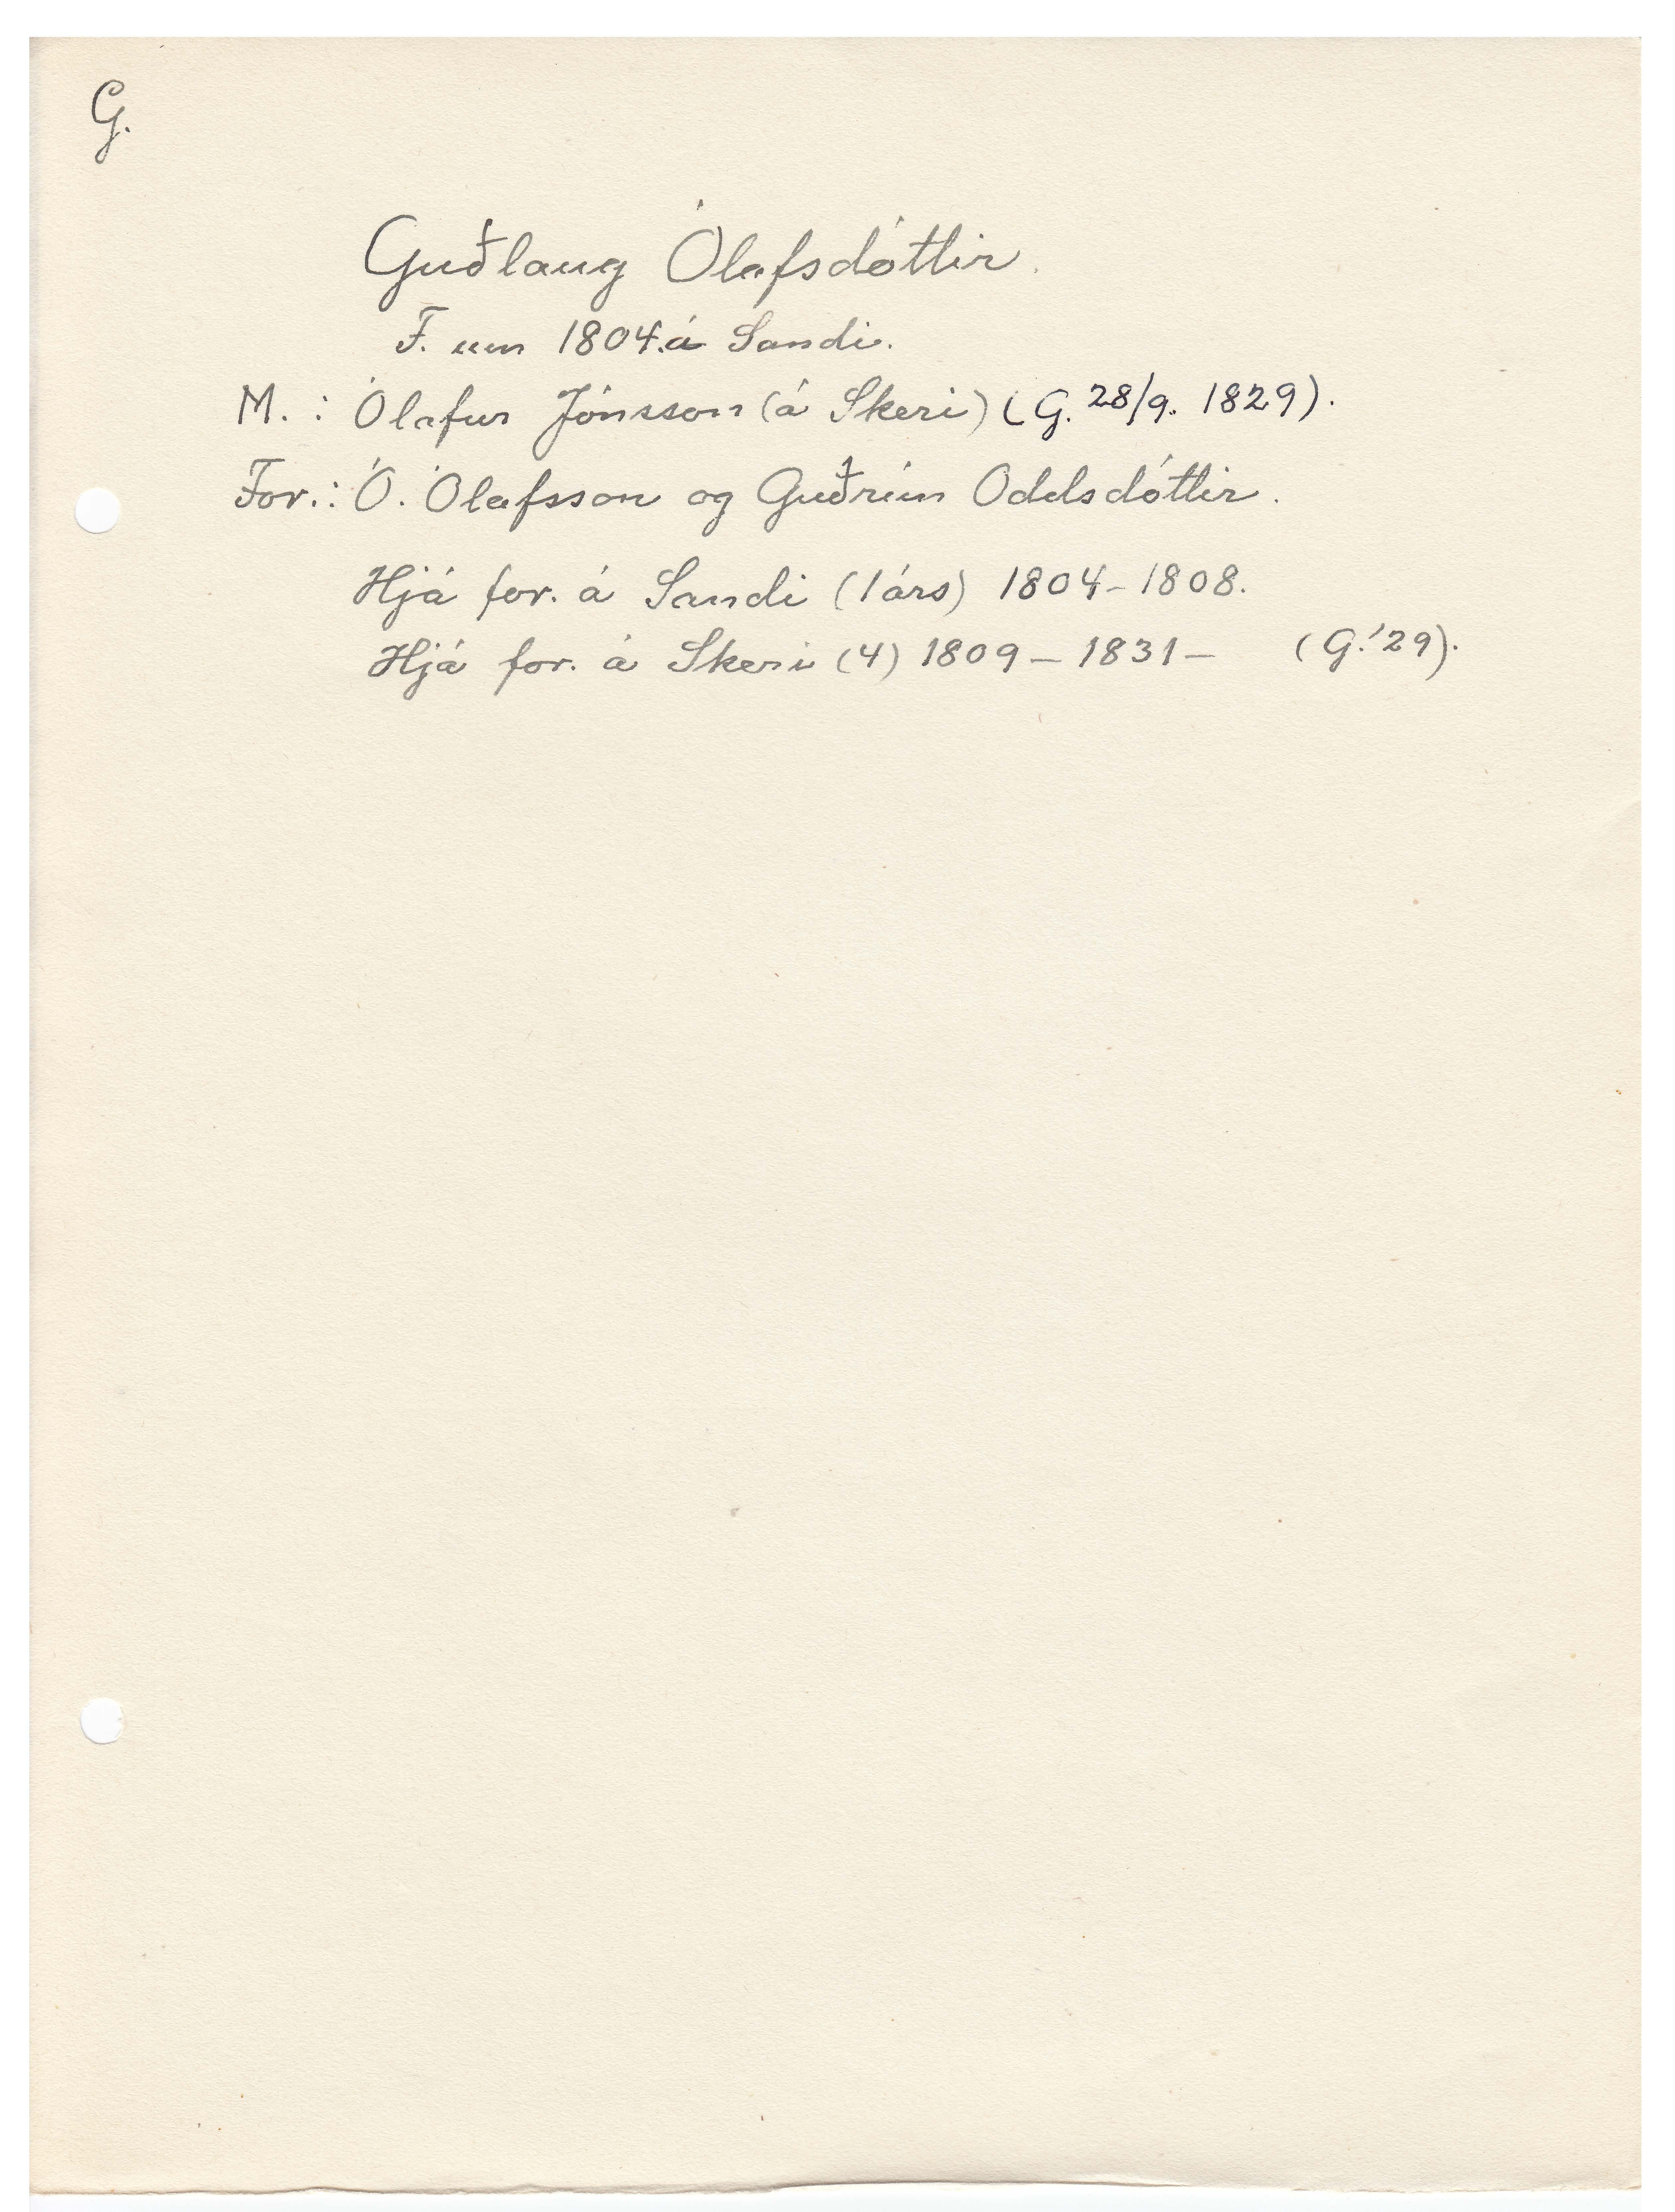 G.
Guðlaug Ólafsdóttir.
F. um 1804. á Sandi.
M. : Ólafur Jónsson (á Skeri) (G. 28/9. 1829).
For.: Ó. Ólafsson og Guðrún Oddsdóttir.
Hjá for. á Sandi (1árs) 1804-1808.
Hjá for. á Skeri (4) 1809 – 1831 – (G.'29).